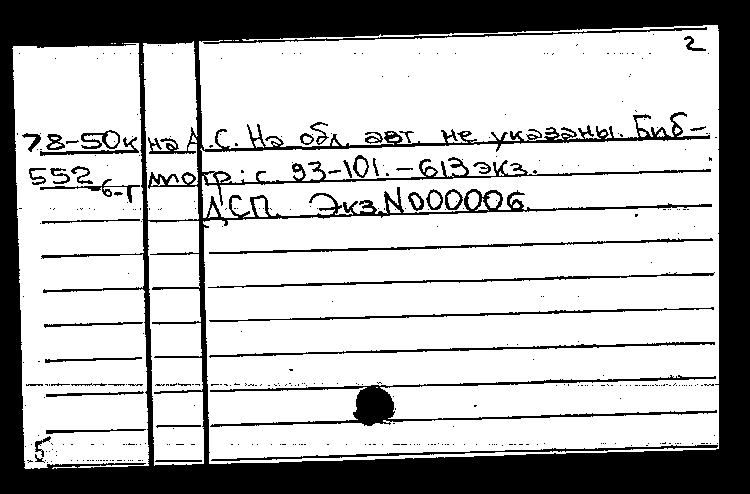 2
78-50к на А.С. На обл. авт. не указаны. Биб-
552-6-г лиогр.: с. 93-101. – 613 экз.
ДСП. Экз. N000006.
5